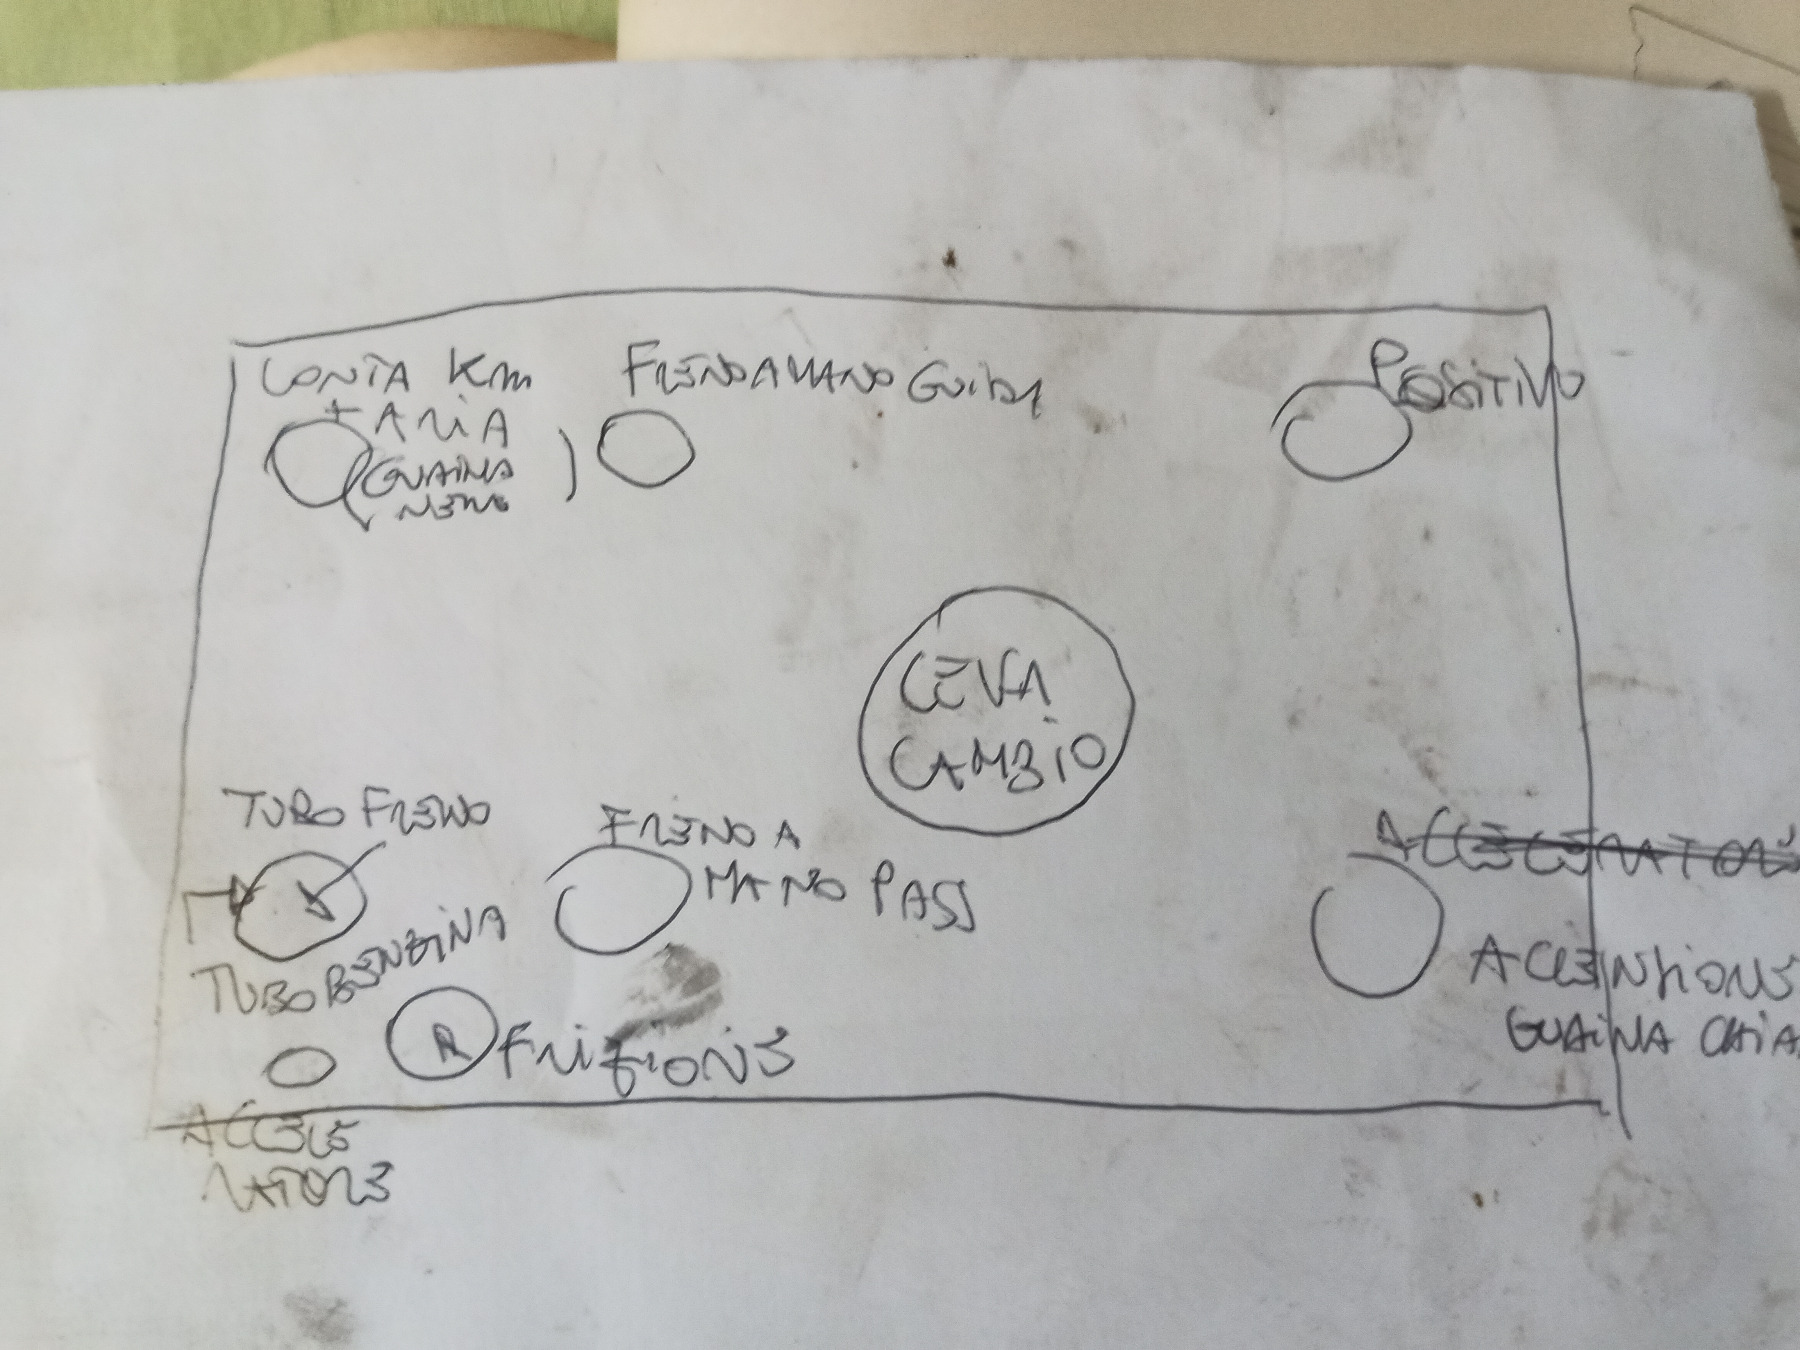 CONTA Km
+ ARIA
(GUAINA
NERA
)
FRENO A MANO GUIDA
POSITIVO
LEVA
CAMBIO
TUBO FRENO
FRENO A
MANO PASS
ACCELERATORE
TUBO BENZINA
ACCENSIONE
GUAINA CHIA
R FRIZIONE
ACCELE
RATORE